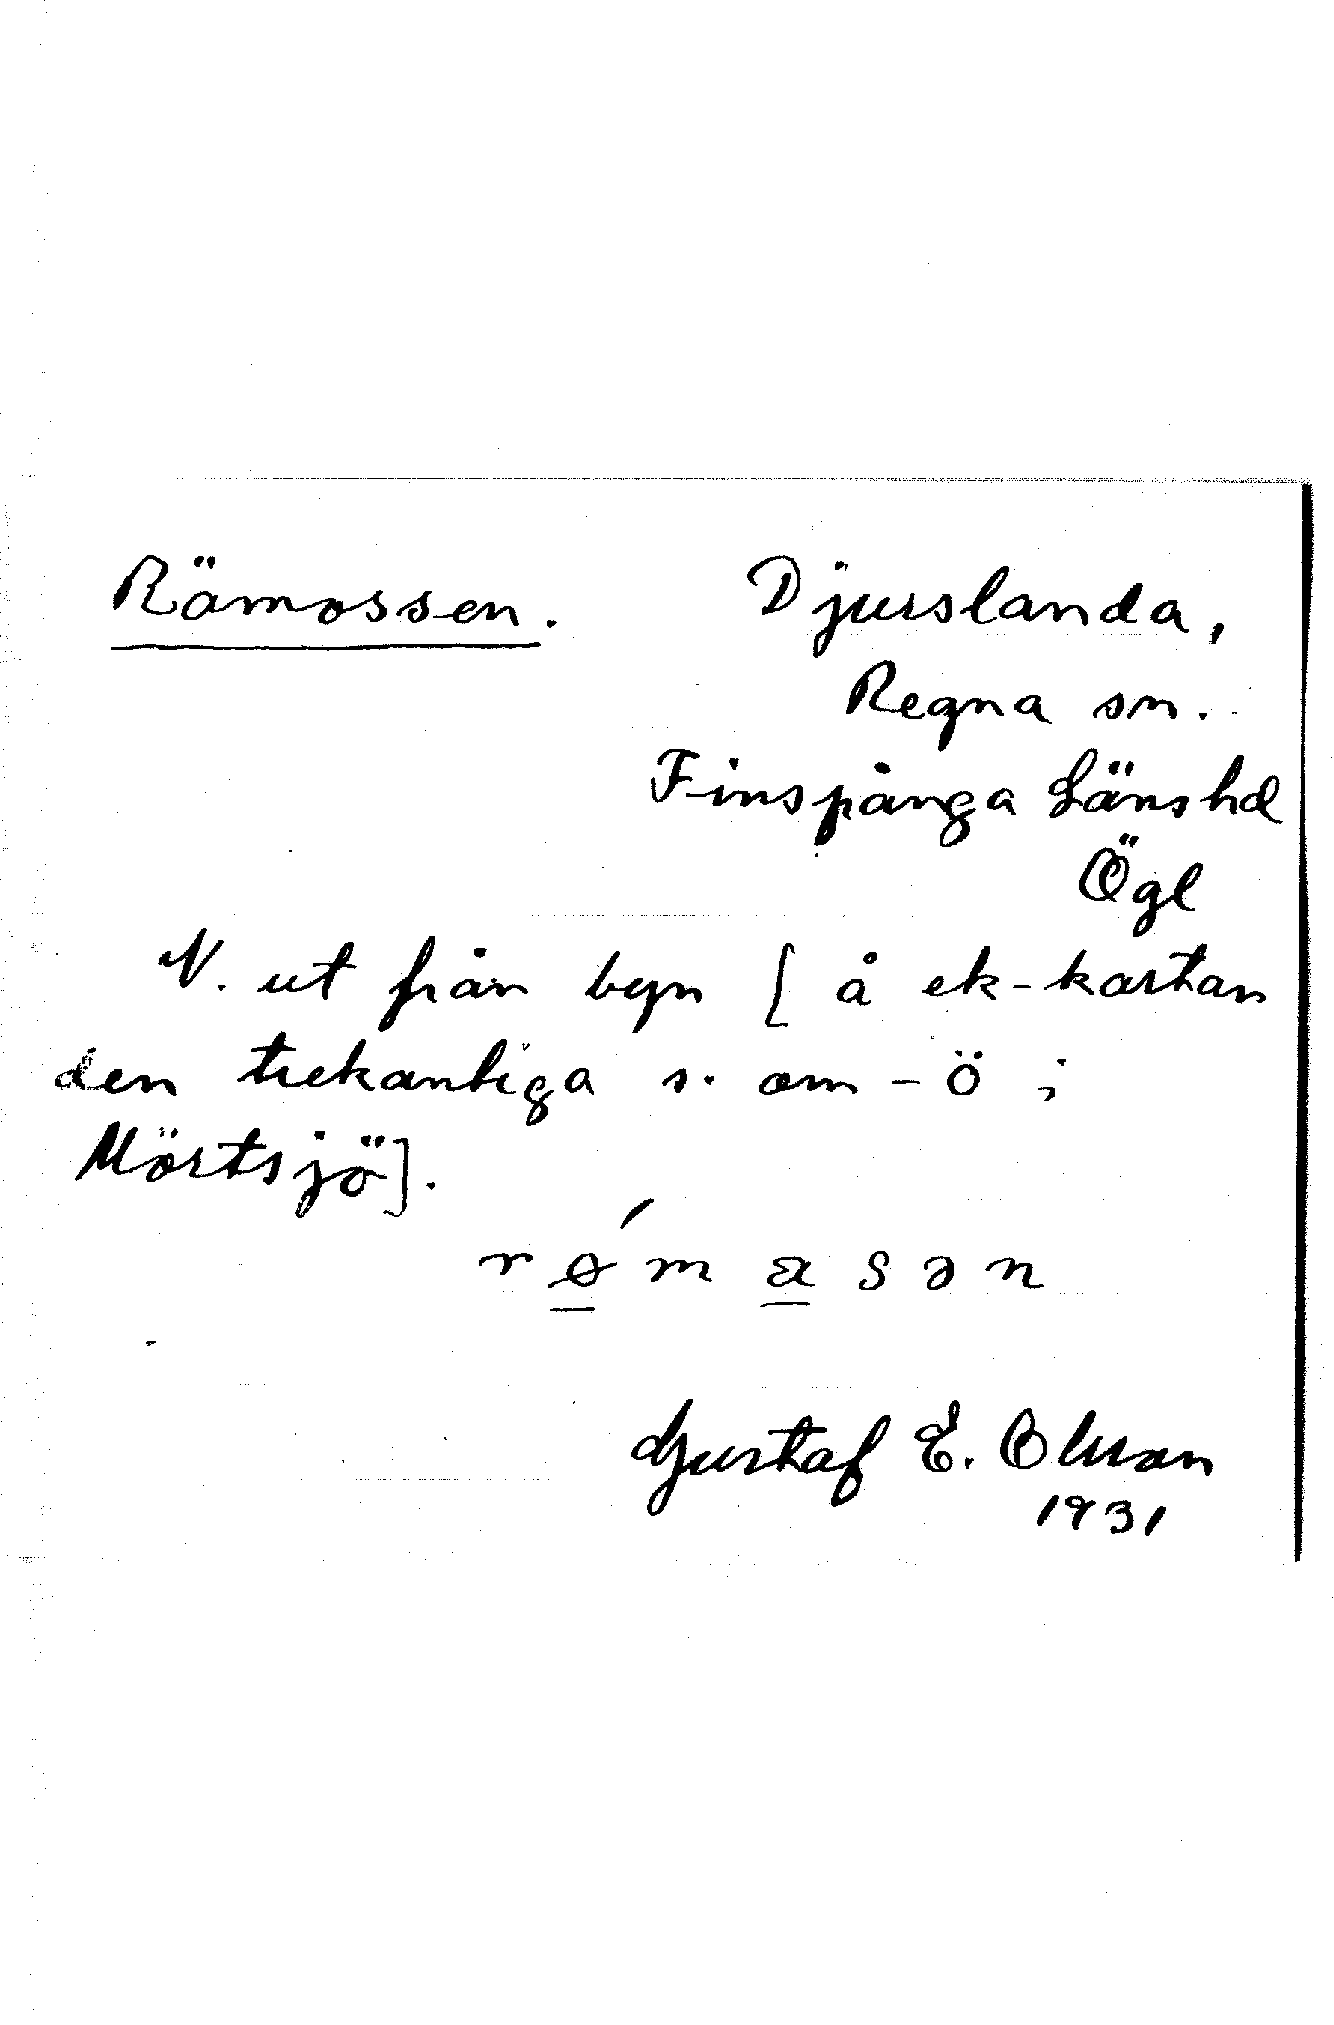 Rämossen. Djurslanda,
Regna sn.
Finspånga Länshd
Ögl
N. ut från byn [ å ek-kartan
den trekantiga s. om - ö i
Mörtsjö].
rǿmasən
Gustaf E. Olsson
1931